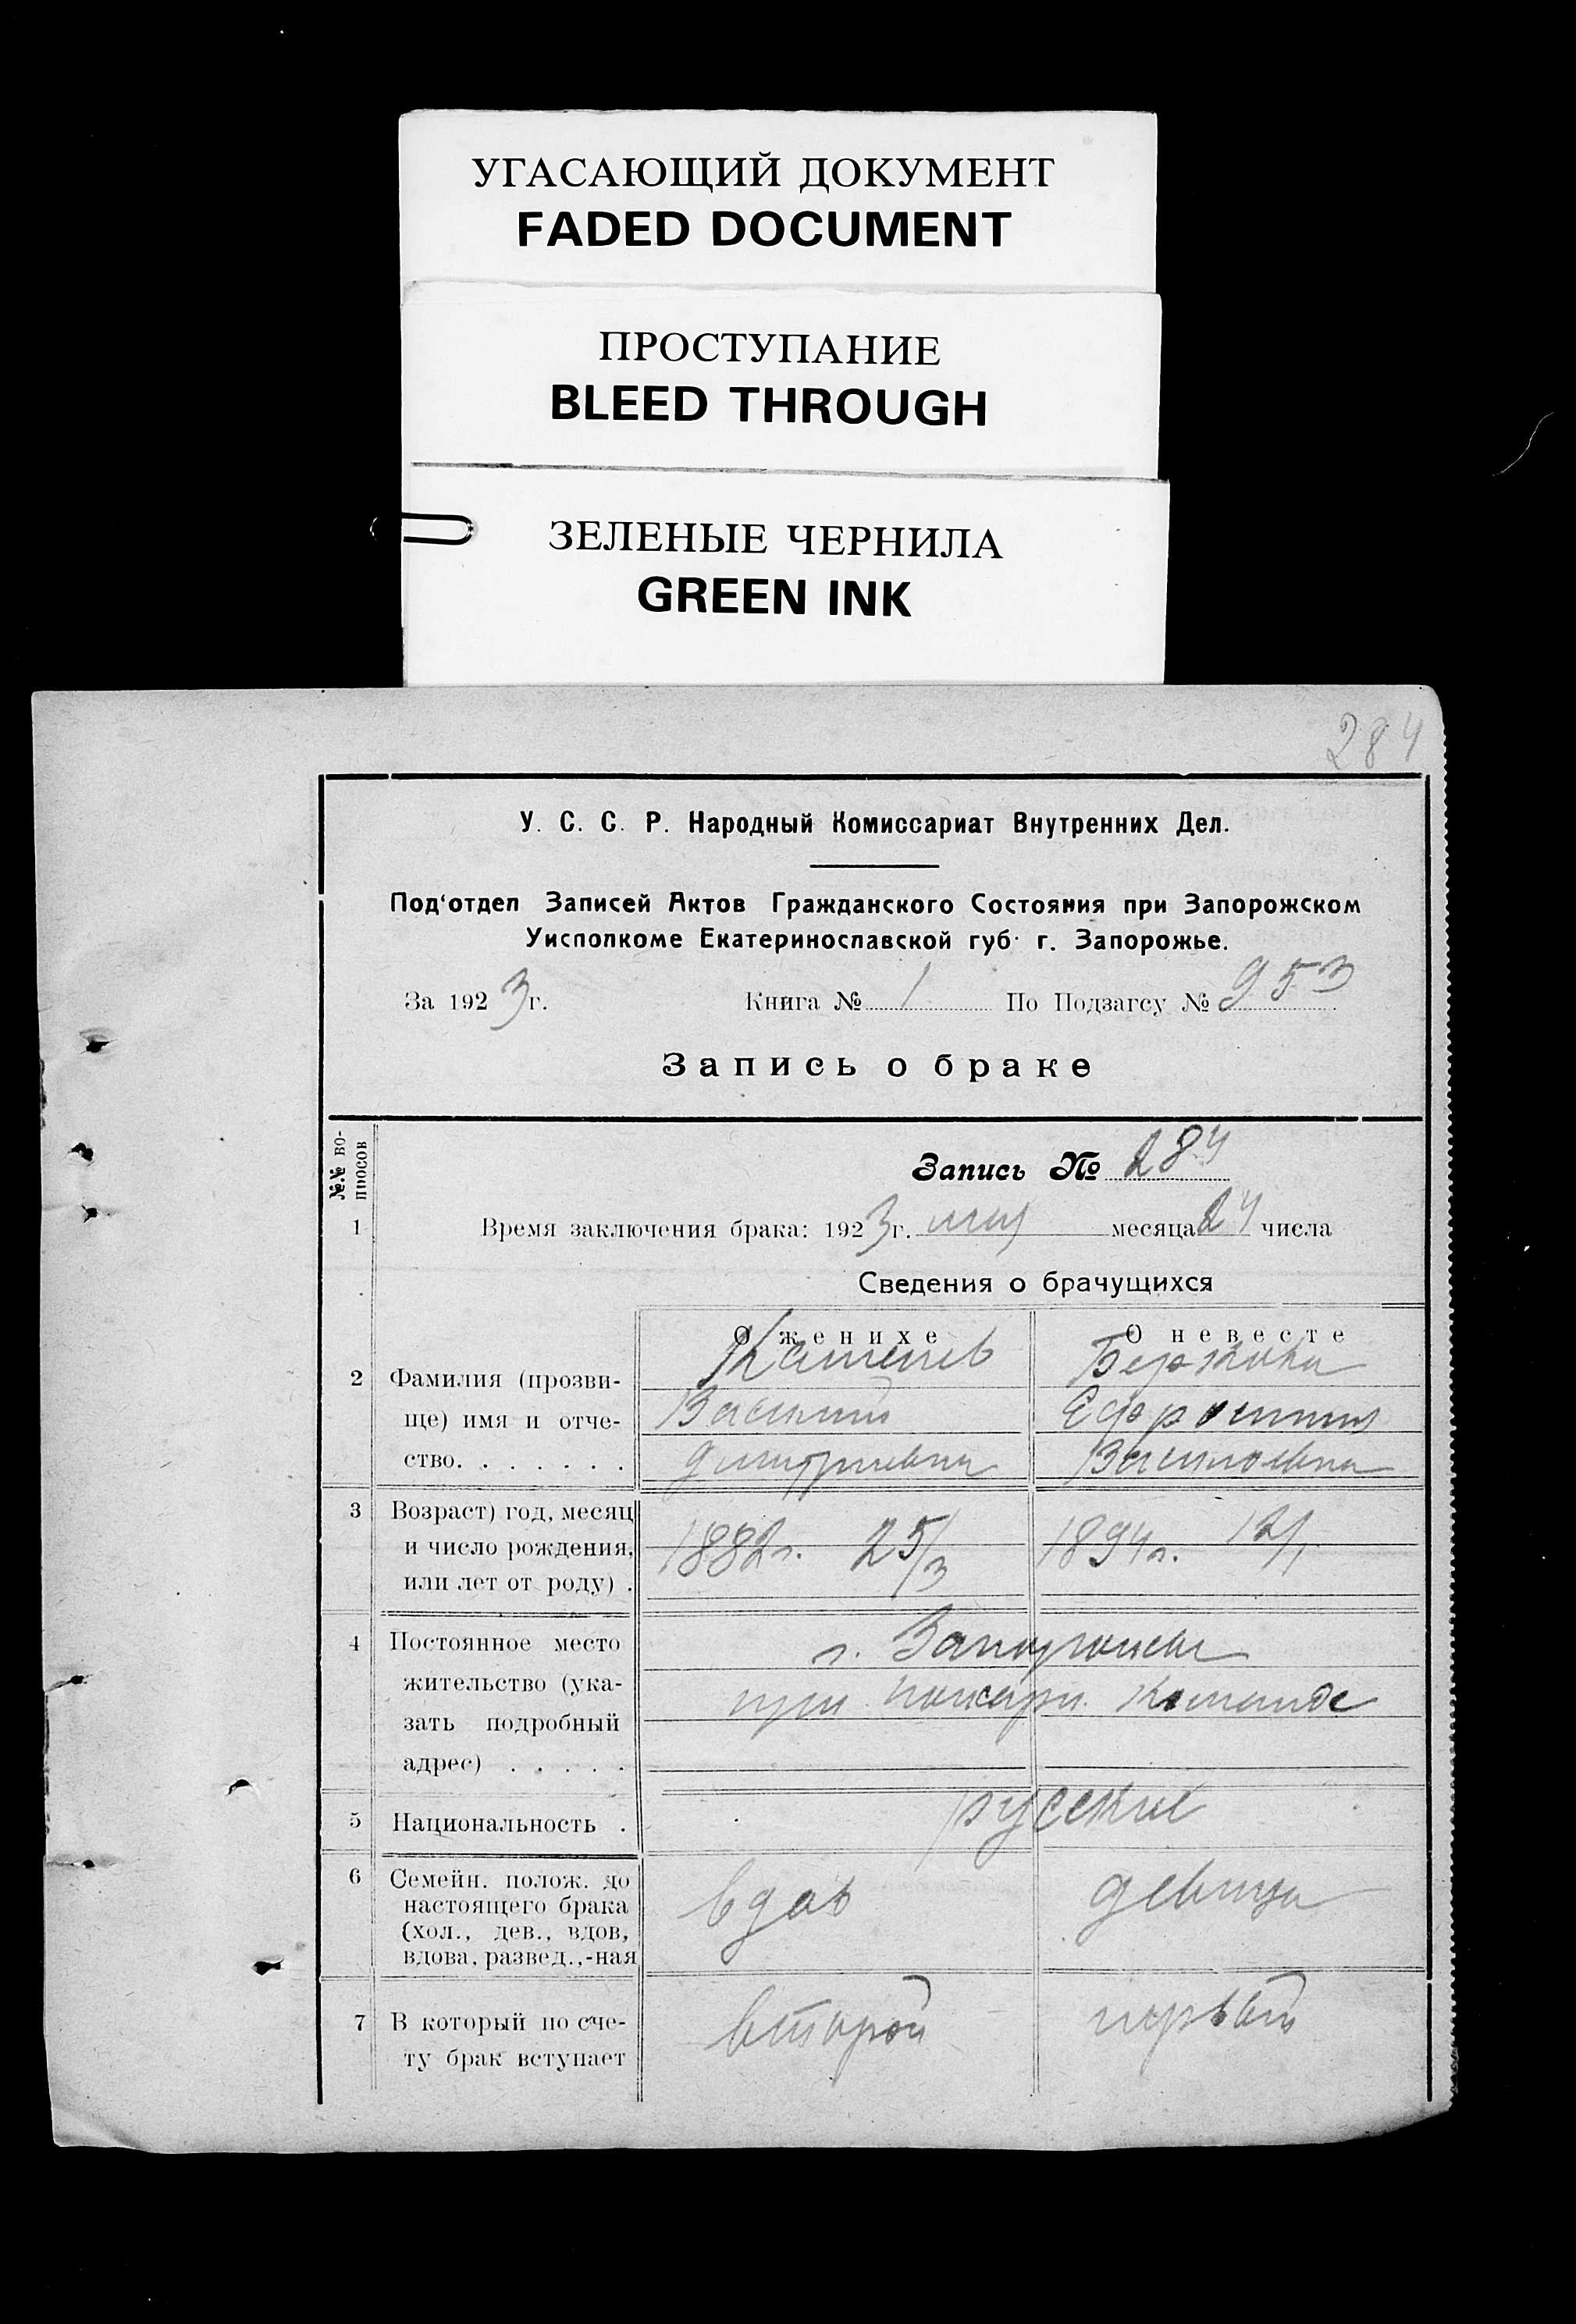 УГАСАЮЩИЙ ДОКУМЕНТ
FADED DOCUMENT
ПРОСТУПАНИЕ
BLEED THROUGH
ЗЕЛЕНЫЕ ЧЕРНИЛА
GREEN INK
284
У. С. С. Р. Народный Комиссариат Внутренних Дел.
Под'отдел Записей Актов Гражданского Состояния при Запорожском
Уисполкоме Екатеринославской губ. г. Запорожье.
За 1923 г. Книга № 1 По Подзагсу № 953
Запись о браке
№№ во-
просов
Запись № 284
1 Время заключения брака: 1923 г. мая месяца 24 числа
Сведения о брачущихся
О женихе О невесте
2 Фамилия (прозви-
ще) имя и отче-
ство. . . . . . .
Каменев
Василий
Дмитриевич
Ефросиния
Васильевна
3 Возраст) год, месяц
и число рождения,
или лет от роду) .
1882 г. 25/3 1894 г. 12/1
4 Постоянное место
жительство (ука-
зать подробный
адрес) . . . . .
г. Запорожье
при пожарн. команде
5 Национальность . русские
6 Семейн. полож. до
настоящего брака
(хол., дев., вдов,
вдова, развед.,-ная
вдов девица
7 В который по сче-
ту брак вступает
второй первый